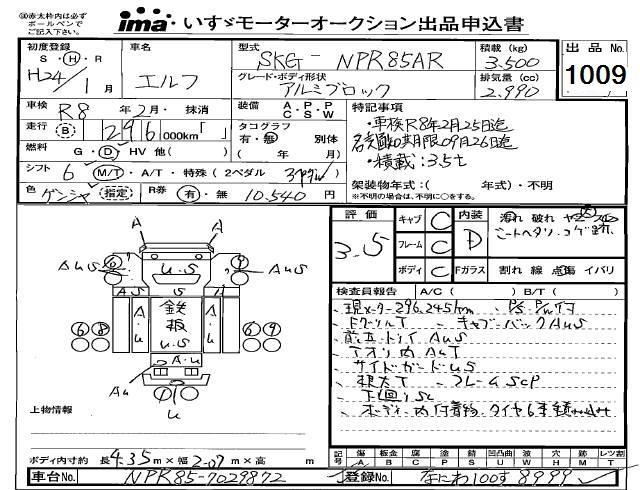 ※赤太枠内は必ず
ボールペンで
ご記入下さい。
ima・いすゞモーターオークション出品申込書
初度登録 S・H・R H24/1月
車名 エルフ
型式 SKG-NPR85AR
積載(kg) 3.500
グレード・ボディ形状 アルミブロック
排気量(cc) 2.990
出品No. 1009
車検 R8年2月・抹消
装備 A・C P・S P・W
特記事項
・車検R8年2月25日迄
走行 B 296000km「 」
タコグラフ 有・無 別体
名変期限09月26日迄
燃料 G・D HV 他( )
( 年 月)
・積載:3.5t
シフト 6 M/T・A/T・特殊(2ペダル) 3ペダル
架装物年式:( 年式)・不明
※不明の場合は、不明に○をする。
色 ゲンシャ(指定)
R券 有・無 10.540円
評価 3.5
キャブ C
フレーム C
ボディ C
内装 D
汚れ 破れ ヤニ
シートヘタリ.コゲ
Fガラス 割れ 線 点傷 イバリ
検査員報告 A/C( ) B/T( )
、現メーター296.245km 、P/S.P/W付
、ドクーリルT 、キャブーバックAUS
、前立トリイAUS
、アオリ内AUT
、サイドガードUS
、根太T 、フレームSCP
、下回りSC
、ボディー内付着物.タイヤ6本
A A
AUS 6 9 AUS
U.S
A S S A
A・U 鉄板 U.S A・U
6 8 6 9
A・U
AU
U
上物情報
ボディ内寸約 長4.35m×幅2.07m×高 m
記号 傷A 板金B 腐C 塗P 錆S 凹凸凹U 波W 穴H 跡M レツ割T
車台No. NPR85-7029872
登録No. なにわ100す8999